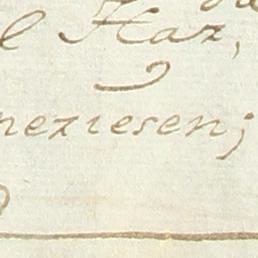 l Haz,
neziesen;